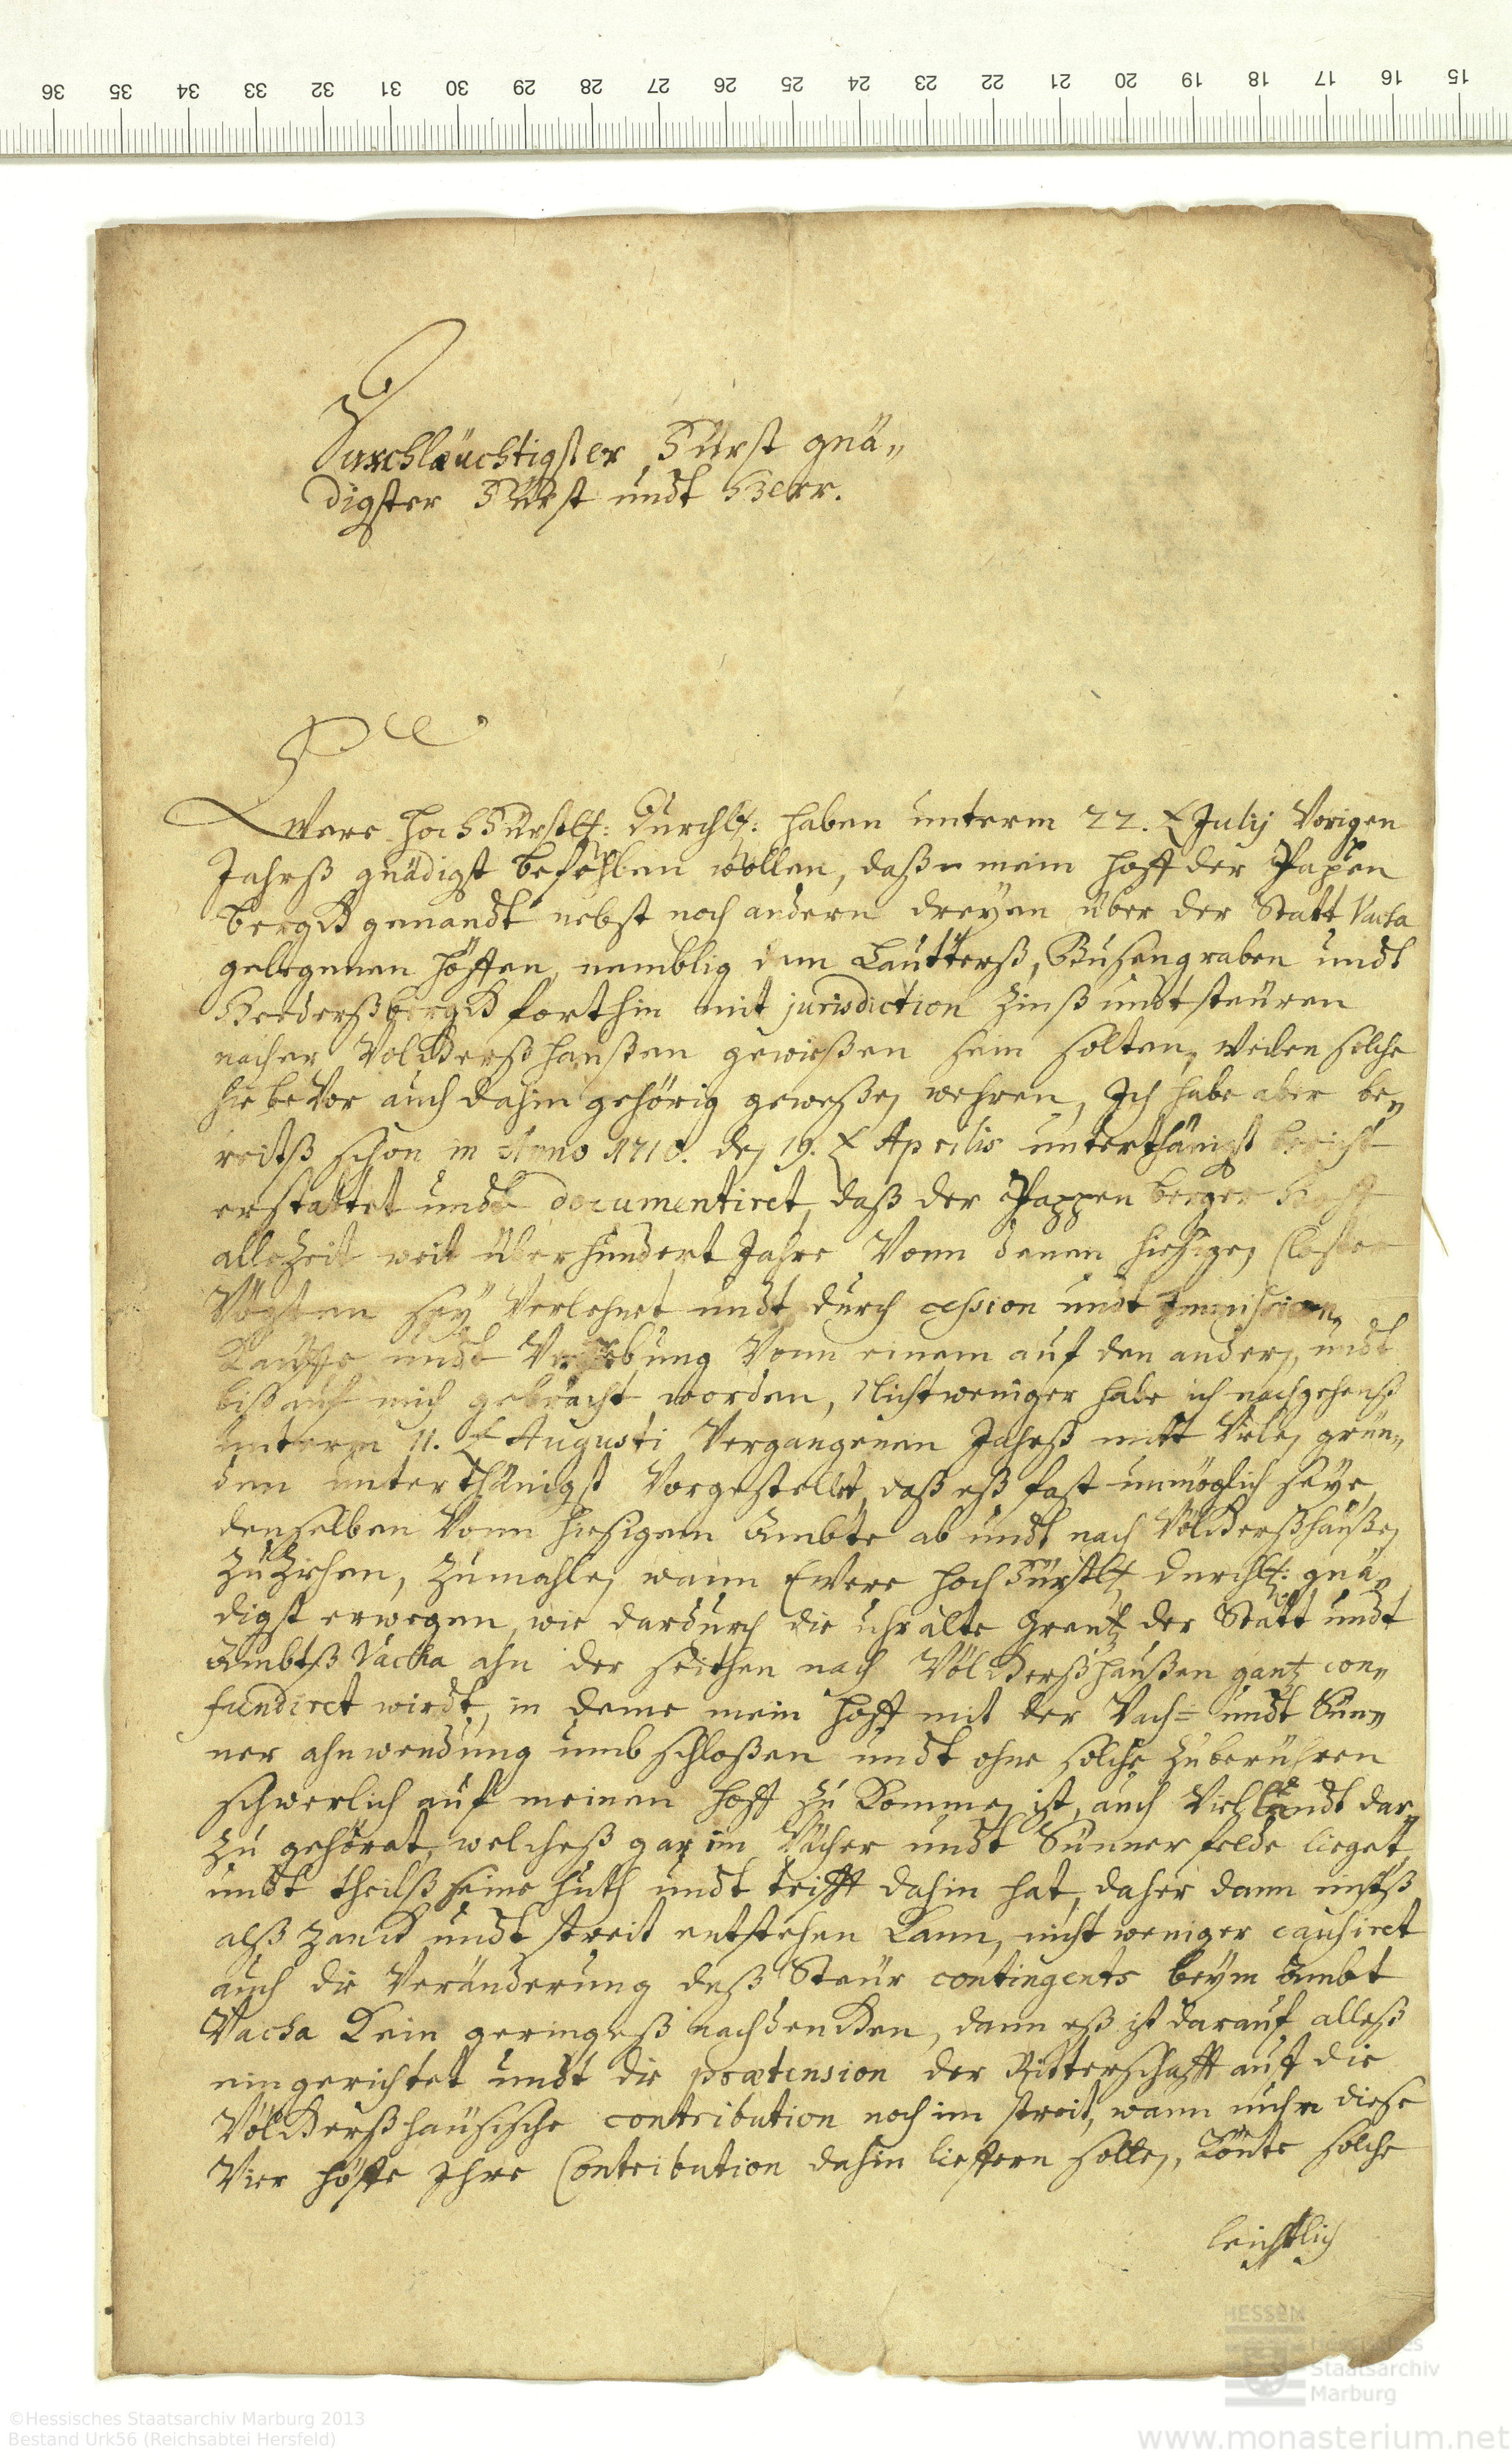 36 35 34 33 32 31 30 29 28 27 26 25 24 23 22 21 20 19 18 17 16 15
Durchläuchtigster Fürst gnä„
digster Fürst undt Herr.
Ewere HochFürstl: Durchl: haben unterm 22. t July Vorigen
Jahrß gnädigst befohlen wollen, daß mein Hoff der Papen
bergk genandt nebst noch andern dreyen über der Statt Vacha
gelegenen höffen, nemblig dem Lautterß, Busengraben undt
Heederßbergk forthin mit jurisdiction Zinß undt steüren
nacher Volckerßhaußen gewießen sein solten, weilen solche
hiebeVor auch dahin gehörig geweßen wehren, Ich habe aber be„
reitß schon in Anno 1710. den 19. t Aprilis unterthänigst bericht
erstattet undt documentiret, daß der Pappenberger Hoff
allezeit weit über hundert Jahre Vonn denen hiesigen Closter
Vögten sey Verlehnet undt durch cession undt
Kauffe undt Vonn einem auf den andern, undt
biß auf mich gebracht worden, Nicht weniger habe ich nachgehenß
unterm 11. t Augusti Vergangenen Jahrß mitt Vielen grün„
den unterthänigst Vorgestellet, daß eß fast unmöglich seye,
denselben Vonn hiesigem Ambte ab undt nach Völckerßhaußen
Zu Ziehen, Zumahlen wann Ewere HochFürstl Durchl: gnä„
digst erwegen, wie dardurch die uhralte Grentz der Statt undt
Ambtß Vacha ahn der seithen nach Völckerßhaußen gantz con„
fundiret wirdt, in deme mein Hoff mit der Vach= undt Sün„
ner ahnwendung umbschloßen undt ohne solche Zu berühren
schwerlich auf meinen Hoff Zu Kommen ist, auch Viel landt dar„
Zu gehöret, welcheß gar im Vächer undt Sünner felde lieget
undt theilß seine huth undt trifft dahin hat, daher dann nichtß
alß Zanck undt streit entstehen kann, nicht weniger causiret
auch die Veränderung deß Steür contingents beym Ambt
Vacha Kein geringeß nachdencken, dann eß ist darauf alleß
eingerichtet undt die praetension der Ritterschafft auf die
Völckerßhaüsische contribution noch im streit, wann nuhn diese
Vier höffe Ihre Contribution dahin lieffern sollen, Könte solche
leichtlich
HESSEN
Hessisches
Staatsarchiv
Marburg
©Hessisches Staatsarchiv Marburg 2013
Bestand Urk56 (Reichsabtei Hersfeld)
www.monasterium.net